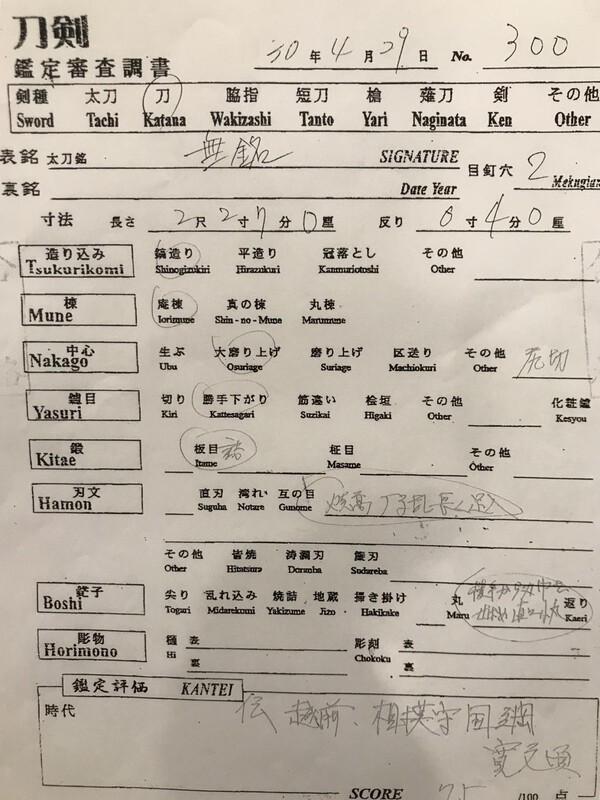 刀剣
鑑定審査調書
30年4月29日 No. 300
剣種 太刀 刀 脇指 短刀 槍 薙刀 剣 その他
Sword Tachi Katana Wakizashi Tanto Yari Naginata Ken Other
表銘 太刀銘 無銘 SIGNATURE 目釘穴 2
裏銘 Date Year Mekugiana
寸法 長さ 2尺2寸7分0厘 反り 0寸4分0厘
造り込み 鎬造り 平造り 冠落とし その他
Tsukurikomi Shinogizukiri Hirazukuri Kanmuriotoshi Other
棟 庵棟 真の棟 丸棟
Mune Iorimune Shin-no-Mune Marumune
中心 生ぶ 大磨り上げ 磨り上げ 区送り その他
Nakago Ubu Osuriage Suriage Machiokuri Other
鑢目 切り 勝手下がり 筋違い 桧垣 その他 化粧鑢
Yasuri Kiri Kattesagari Suzikai Higaki Other Kesyou
鍛 板目 詰 柾目 その他
Kitae Itame Masame Other
刃文 直刃 湾れ 互の目 焼高 丁子乱 長く足入
Hamon Suguha Notare Gunome
その他 皆焼 涛瀾刃 簾刃
Other Hitatsura Doranba Sudareba
鋩子 尖り 乱れ込み 焼詰 地蔵 掃き掛け 丸 返り
Boshi Togari Midarekomi Yakizume Jizo Hakikake Maru Kaeri
彫物 樋 表 彫刻 表
Horimono Hi 裏 Chokoku 裏
鑑定評価 KANTEI
時代 伝 越前、相模守国綱
寛文頃
SCORE 75 /100 点